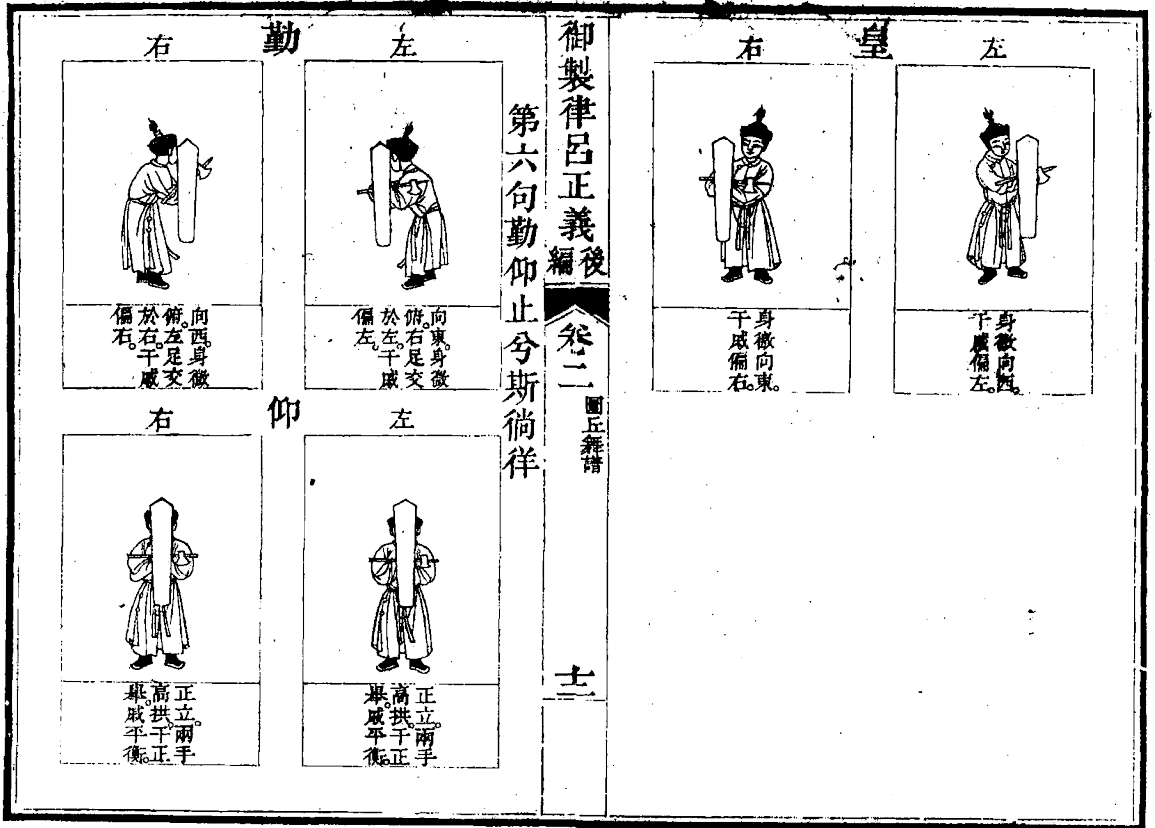 皇
左
身微向西。
干戚偏左。
右
身微向東。
干戚偏右。
御製律呂正義後編
卷二
圜丘舞譜
十三
第六句勤仰止兮斯徜徉
勤
左
向東。身微
俯。右足交
於左。干戚
偏左。
右
向西。身微
俯。左足交
於右。干戚
偏右。
仰
左
正立。兩手
高拱。干正
舉。戚平衡。
右
正立。兩手
高拱。干正
舉。戚平衡。